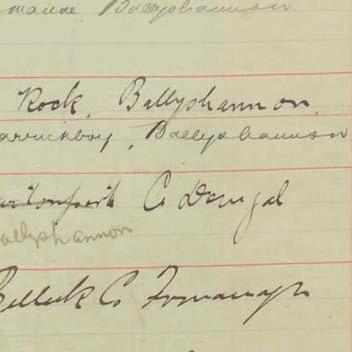 Ballyshannon
Rock, Ballyshannon,
Carrickboy, Ballyshannon
Co Donegal
Ballyshannon
Belleek Co Fermanagh